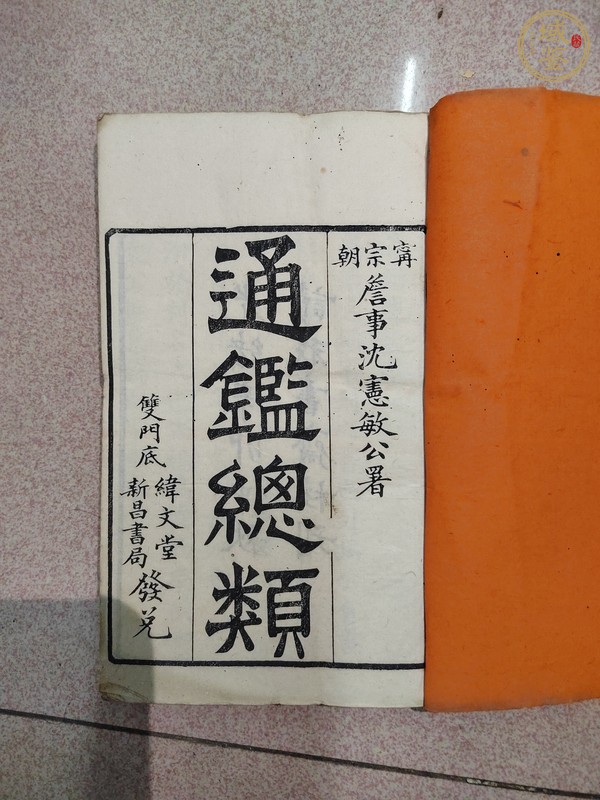 甯宗朝
詹事沈憲敏公署
通鑑總類
雙門底
緯文堂
新昌書局
發兑